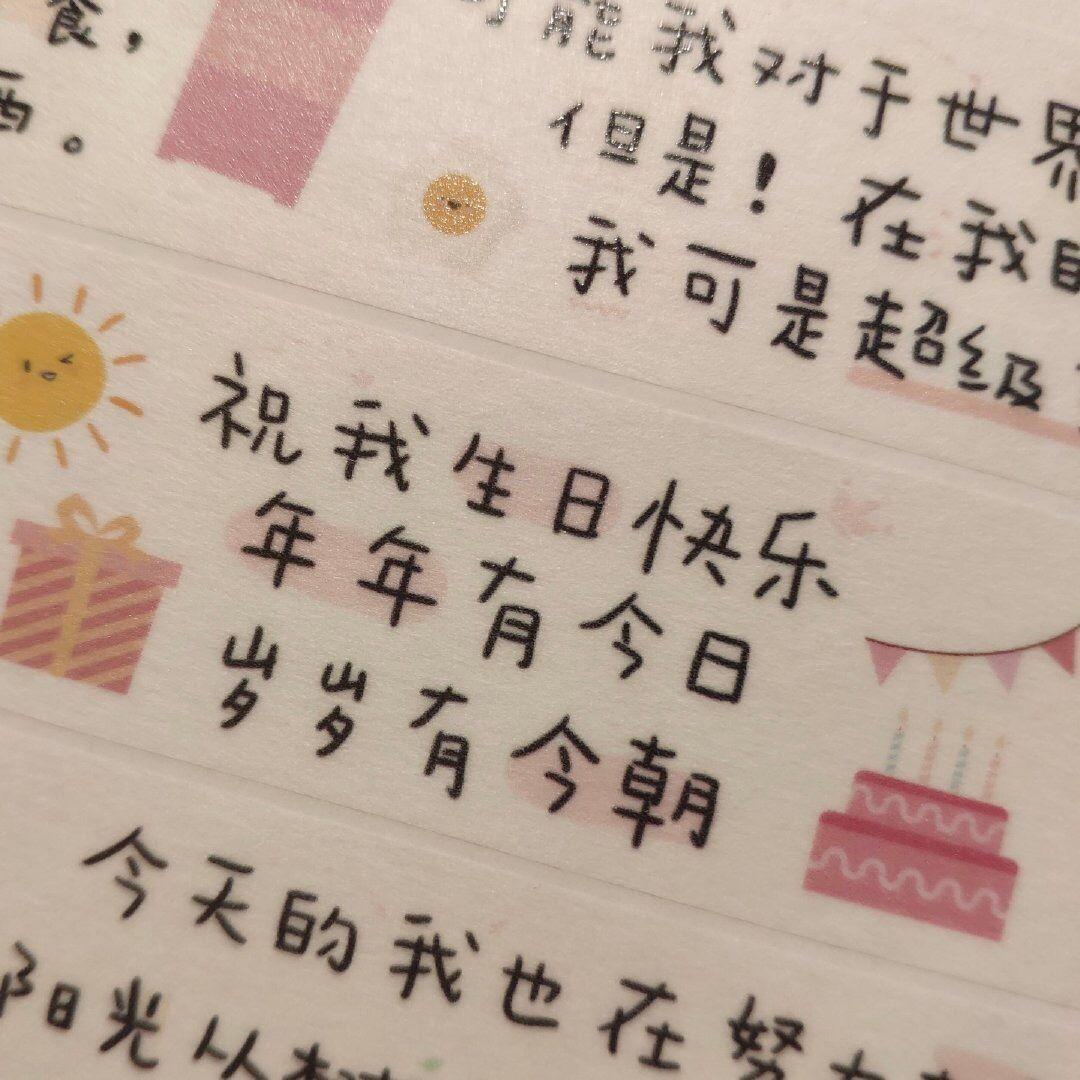 食，
西。
可能我对于世界
但是！在我的
我可是超级
祝我生日快乐
年年有今日
岁岁有今朝
今天的我也在努力
阳光从